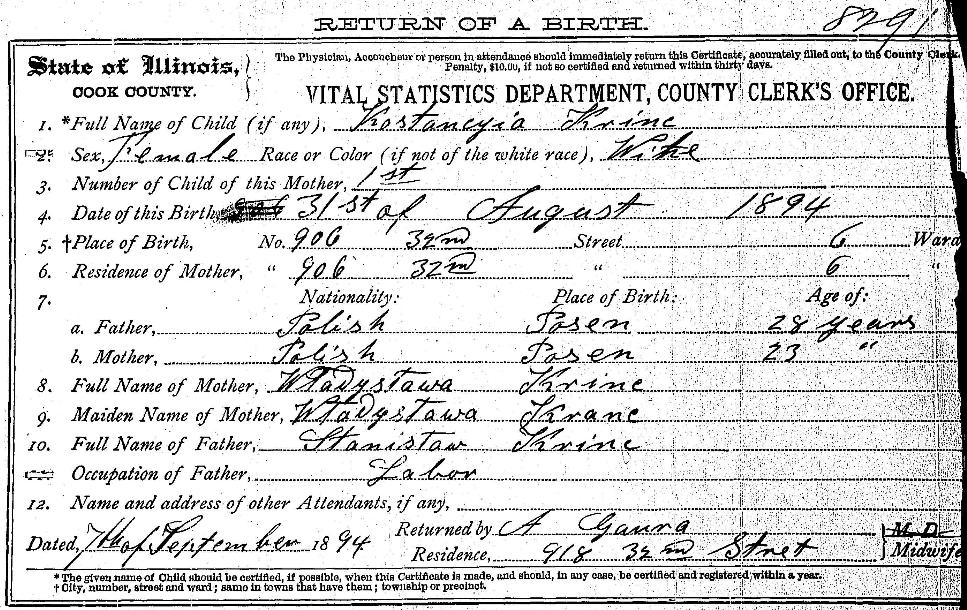 RETURN OF A BIRTH.
8291
State of Illinois,
COOK COUNTY.
The Physician, Accoucheur or person in attendance should immediately return this Certificate, accurately filled out, to the County Clerk.
Penalty, $10.00, if not so certified and returned within thirty days.
VITAL STATISTICS DEPARTMENT, COUNTY CLERK'S OFFICE.
1. *Full Name of Child (if any), Kostancyia Krinc
2. Sex, Female Race or Color (if not of the white race), Wite
3. Number of Child of this Mother, 1st
4. Date of this Birth, 31st of August 1894
5. †Place of Birth, No. 906 32nd Street 6 Ward
6. Residence of Mother, " 906 32nd " 6 "
7. Nationality: Place of Birth: Age of:
a. Father, Polish Posen 28 years
b. Mother, Polish Posen 23 "
8. Full Name of Mother, Władysława Krinc
9. Maiden Name of Mother, Władysława Kranc
10. Full Name of Father, Stanisław Krinc
Occupation of Father, Labor
12. Name and address of other Attendants, if any,
Dated, 7th of September 1894 Returned by A Gaura M. D.
Residence, 918 32nd Stret Midwife
* The given name of Child should be certified, if possible, when this Certificate is made, and should, in any case, be certified and registered within a year.
† City, number, street and ward; same in towns that have them; township or precinct.